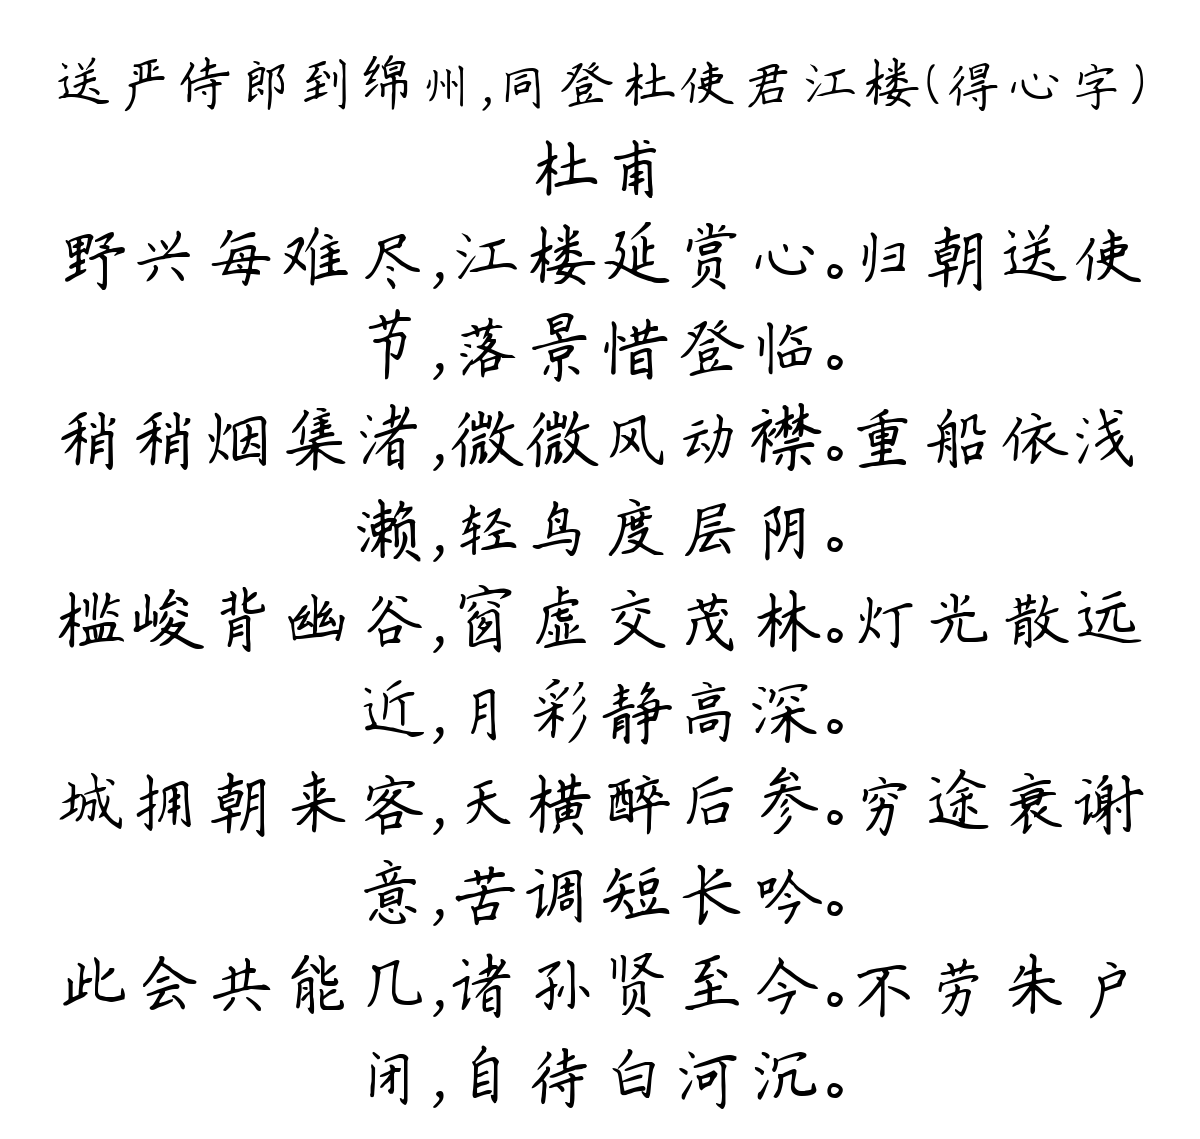 送严侍郎到绵州,同登杜使君江楼(得心字)
杜甫
野兴每难尽,江楼延赏心。归朝送使
节,落景惜登临。
稍稍烟集渚,微微风动襟。重船依浅
濑,轻鸟度层阴。
槛峻背幽谷,窗虚交茂林。灯光散远
近,月彩静高深。
城拥朝来客,天横醉后参。穷途衰谢
意,苦调短长吟。
此会共能几,诸孙贤至今。不劳朱户
闭,自待白河沉。